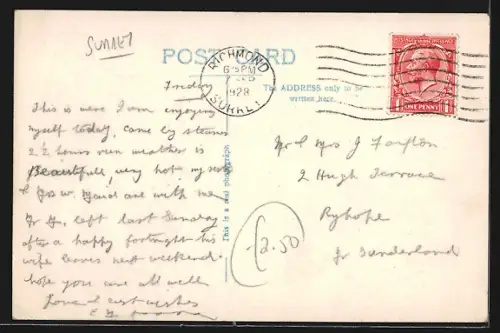 SURREY
POST CARD
RICHMOND
6:15PM
1928
SURREY
ONE PENNY
The ADDRESS only to be
written here.
This is a real photograph
Friday
This is were I am enjoying
myself today, came by steamer
2½ hours run weather is
Beautifull, very hot, myself
with me
left last Sunday
after a happy fortnight his
wife leaves next weekend.
hope you are all well
love & best wishes
Mr & Mrs J
2 Hugh Terrace
Ryhope
Nr Sunderland
2.50